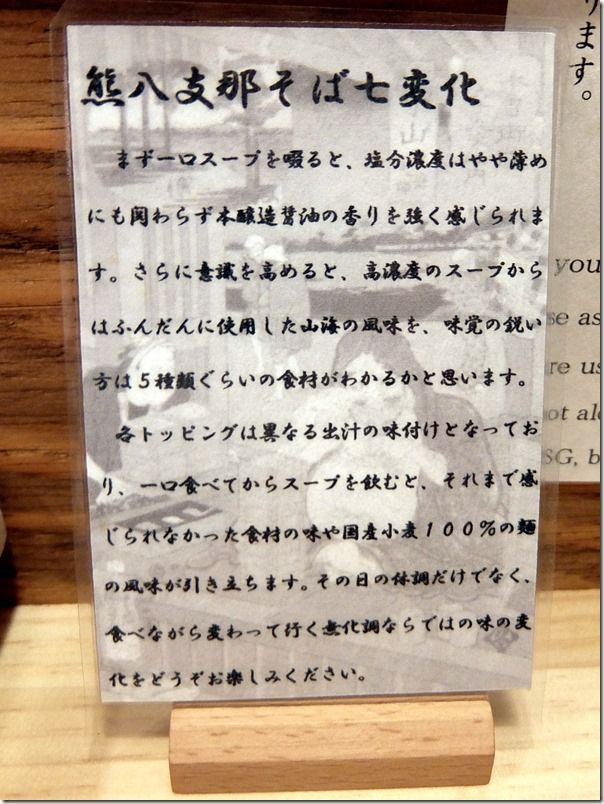 熊八支那そば七変化
まず一口スープを啜ると、塩分濃度はやや薄め
にも関わらず本醸造醤油の香りを強く感じられま
す。さらに意識を高めると、高濃度のスープから
はふんだんに使用した山海の風味を、味覚の鋭い
方は5種類ぐらいの食材がわかるかと思います。
各トッピングは異なる出汁の味付けとなってお
り、一口食べてからスープを飲むと、それまで感
じられなかった食材の味や国産小麦100%の麺
の風味が引き立ちます。その日の体調だけでなく、
食べながら変わって行く無化調ならではの味の変
化をどうぞお楽しみください。
ります。
you
se as
re us
ot al
SG, b